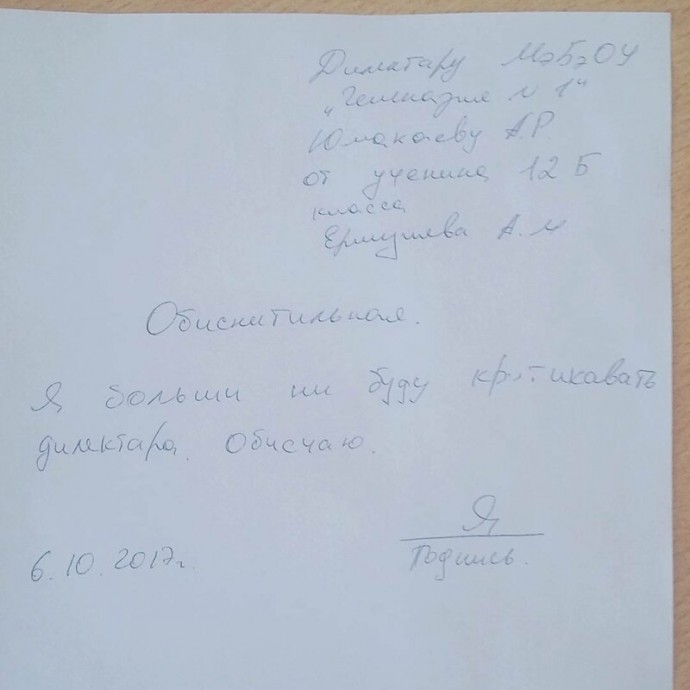 Дилектару МэБэОУ
„Гемназие N 1“
Юмакаеву А.Р.
от ученика 12 Б
класса
Ермушева А.М
Обиснитильная.
Я больши ни буду кретикавать
дилектара. Обисчаю.
Я
Подпись.
6.10.2017г.